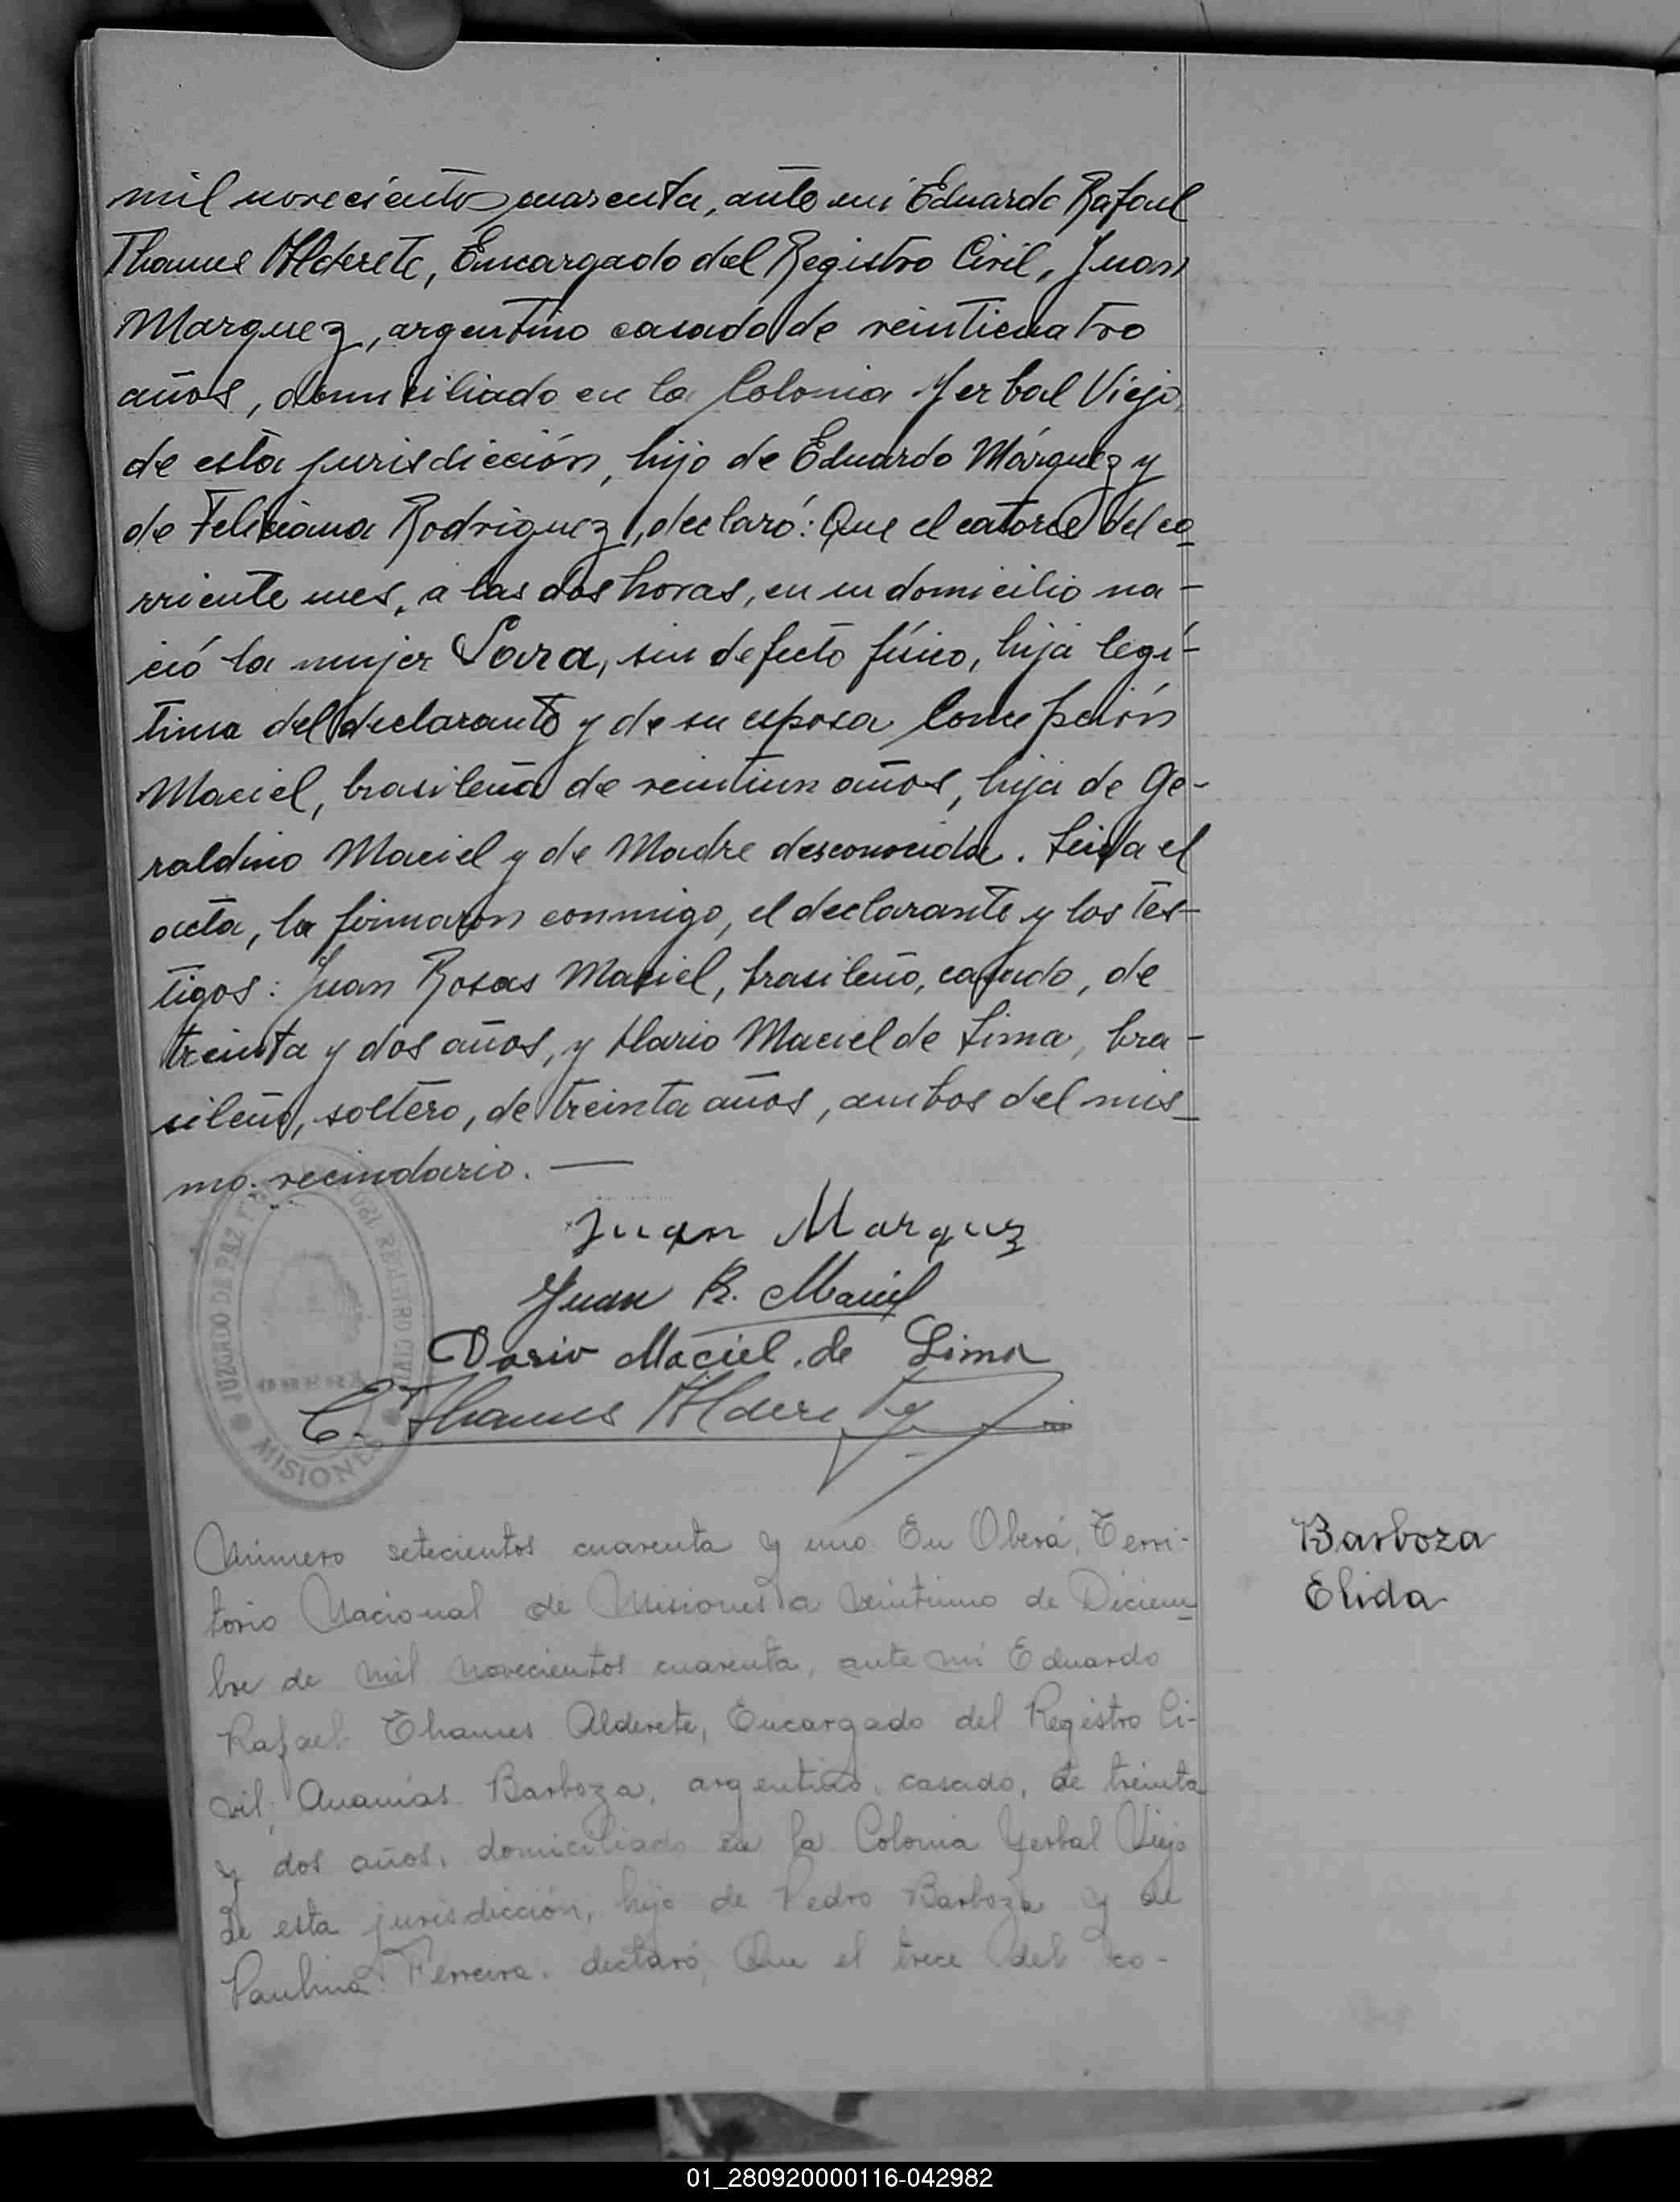 mil novecientos cuarenta, ante mi Eduardo Rafael
Thames Alderete, Encargado del Registro Civil, Juan
Marquez, argentino casado de veinticuatro
años, domiciliado en la Colonia Yerbal Viejo,
de esta jurisdicción, hijo de Eduardo Márquez y
de Feliciana Rodriguez, declaró: Que el catorce del co_
rriente mes, a las dos horas, en su domicilio na-
ció la mujer Sara, sin defecto físico, hija legí-
tima del declarante y de su esposa Concepción
Maciel, brasileña de veintiun años, hija de Ge-
raldino Maciel y de Madre desconocida. Leida el
acta, la firmaron conmigo, el declarante y los tes-
tigos: Juan Rosas Maciel, brasileño, casado, de
treinta y dos años, y Dario Maciel de Lima, bra-
sileño, soltero, de treinta años, ambos del mis_
mo vecindario. —
Juan Marquez
Juan R. Maciel
Dario Maciel de Lima
E. Thames Alderete
JUZGADO DE PAZ Y DEL REGISTRO CIVIL
OBERA
MISIONES
Número setecientos cuarenta y uno. En Oberá, Terri-
torio Nacional de Misiones a veintiuno de Diciem_
bre de mil novecientos cuarenta, ante mí Eduardo
Rafael Thames Alderete, Encargado del Registro Ci-
vil, Ananías Barboza, argentino, casado, de treinta
y dos años, domiciliado en la Colonia Yerbal Viejo
de esta jurisdicción, hijo de Pedro Barboza y de
Paulina Ferreira, declaró, Que el trece del co-
Barboza
Elida
01_280920000116-042982